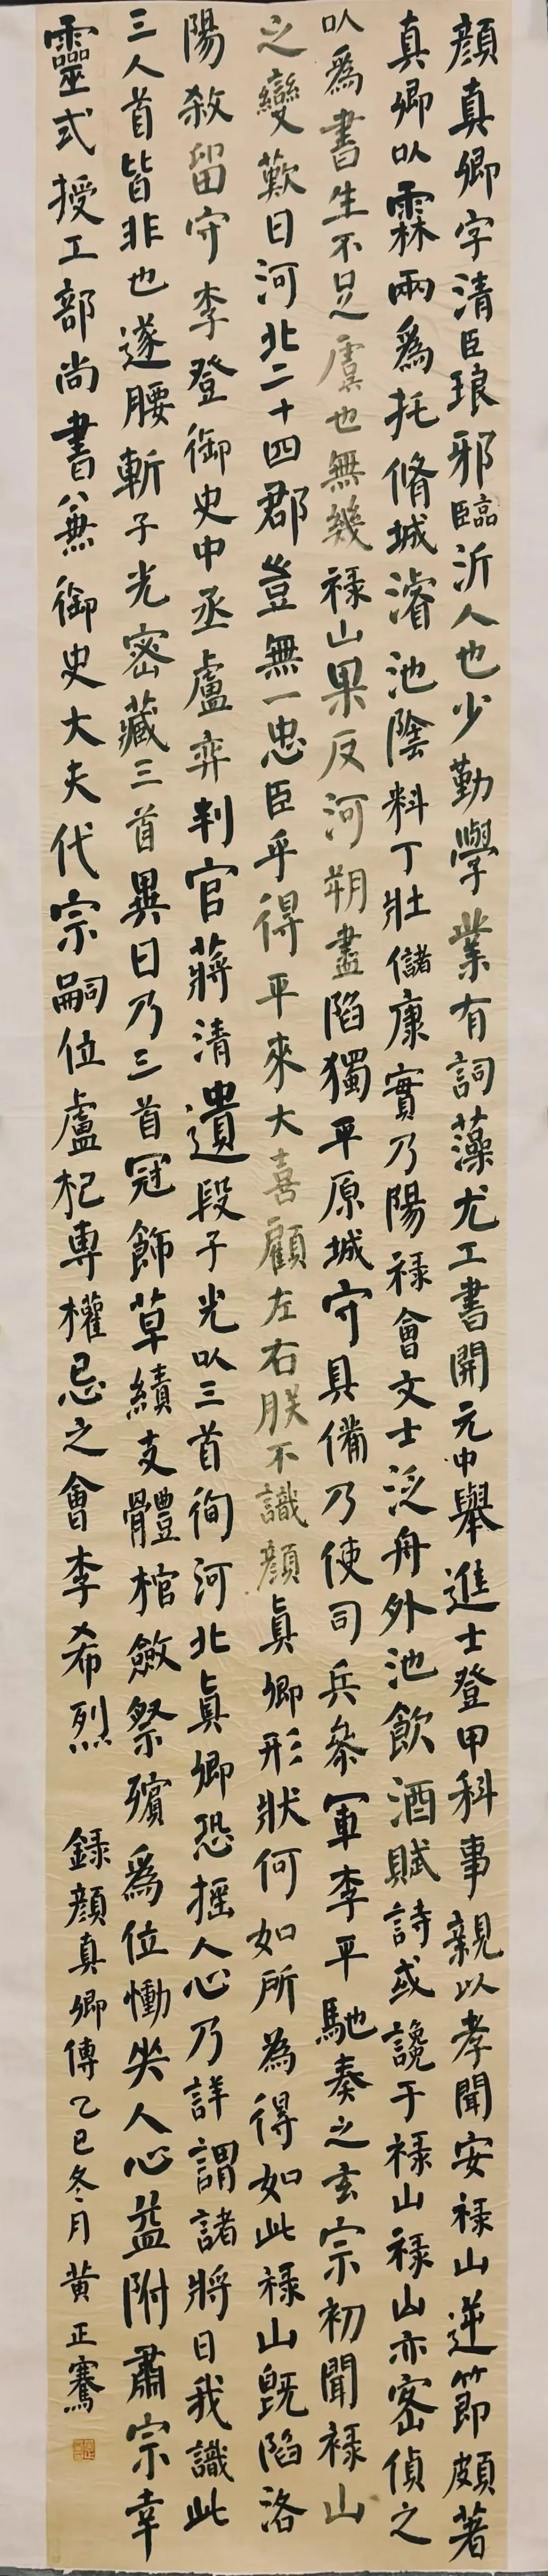 顏真卿字清臣琅邪臨沂人也少勤學業有詞藻尤工書開元中舉進士登甲科事親以孝聞安禄山逆節頗著
真卿以霖雨爲托脩城濬池陰料丁壯儲康實乃陽禄會文士泛舟外池飲酒賦詩或讒于禄山禄山亦密偵之
以爲書生不足虞也無幾禄山果反河朔盡陷獨平原城守具備乃使司兵參軍李平馳奏之玄宗初聞禄山
之變歎曰河北二十四郡豈無一忠臣乎得平來大喜顧左右朕不識顏真卿形狀何如所為得如此禄山既陷洛
陽殺留守李登御史中丞盧弈判官蔣清遺段子光以三首徇河北真卿恐摇人心乃詳謂諸將曰我識此
三人首皆非也遂腰斬子光密藏三首異日乃三首冠飾草續支體棺斂祭殯爲位慟哭人心益附肅宗幸
靈武授工部尚書兼御史大夫代宗嗣位盧杞專權忌之會李希烈
錄顏真卿傳乙巳冬月黄正騫